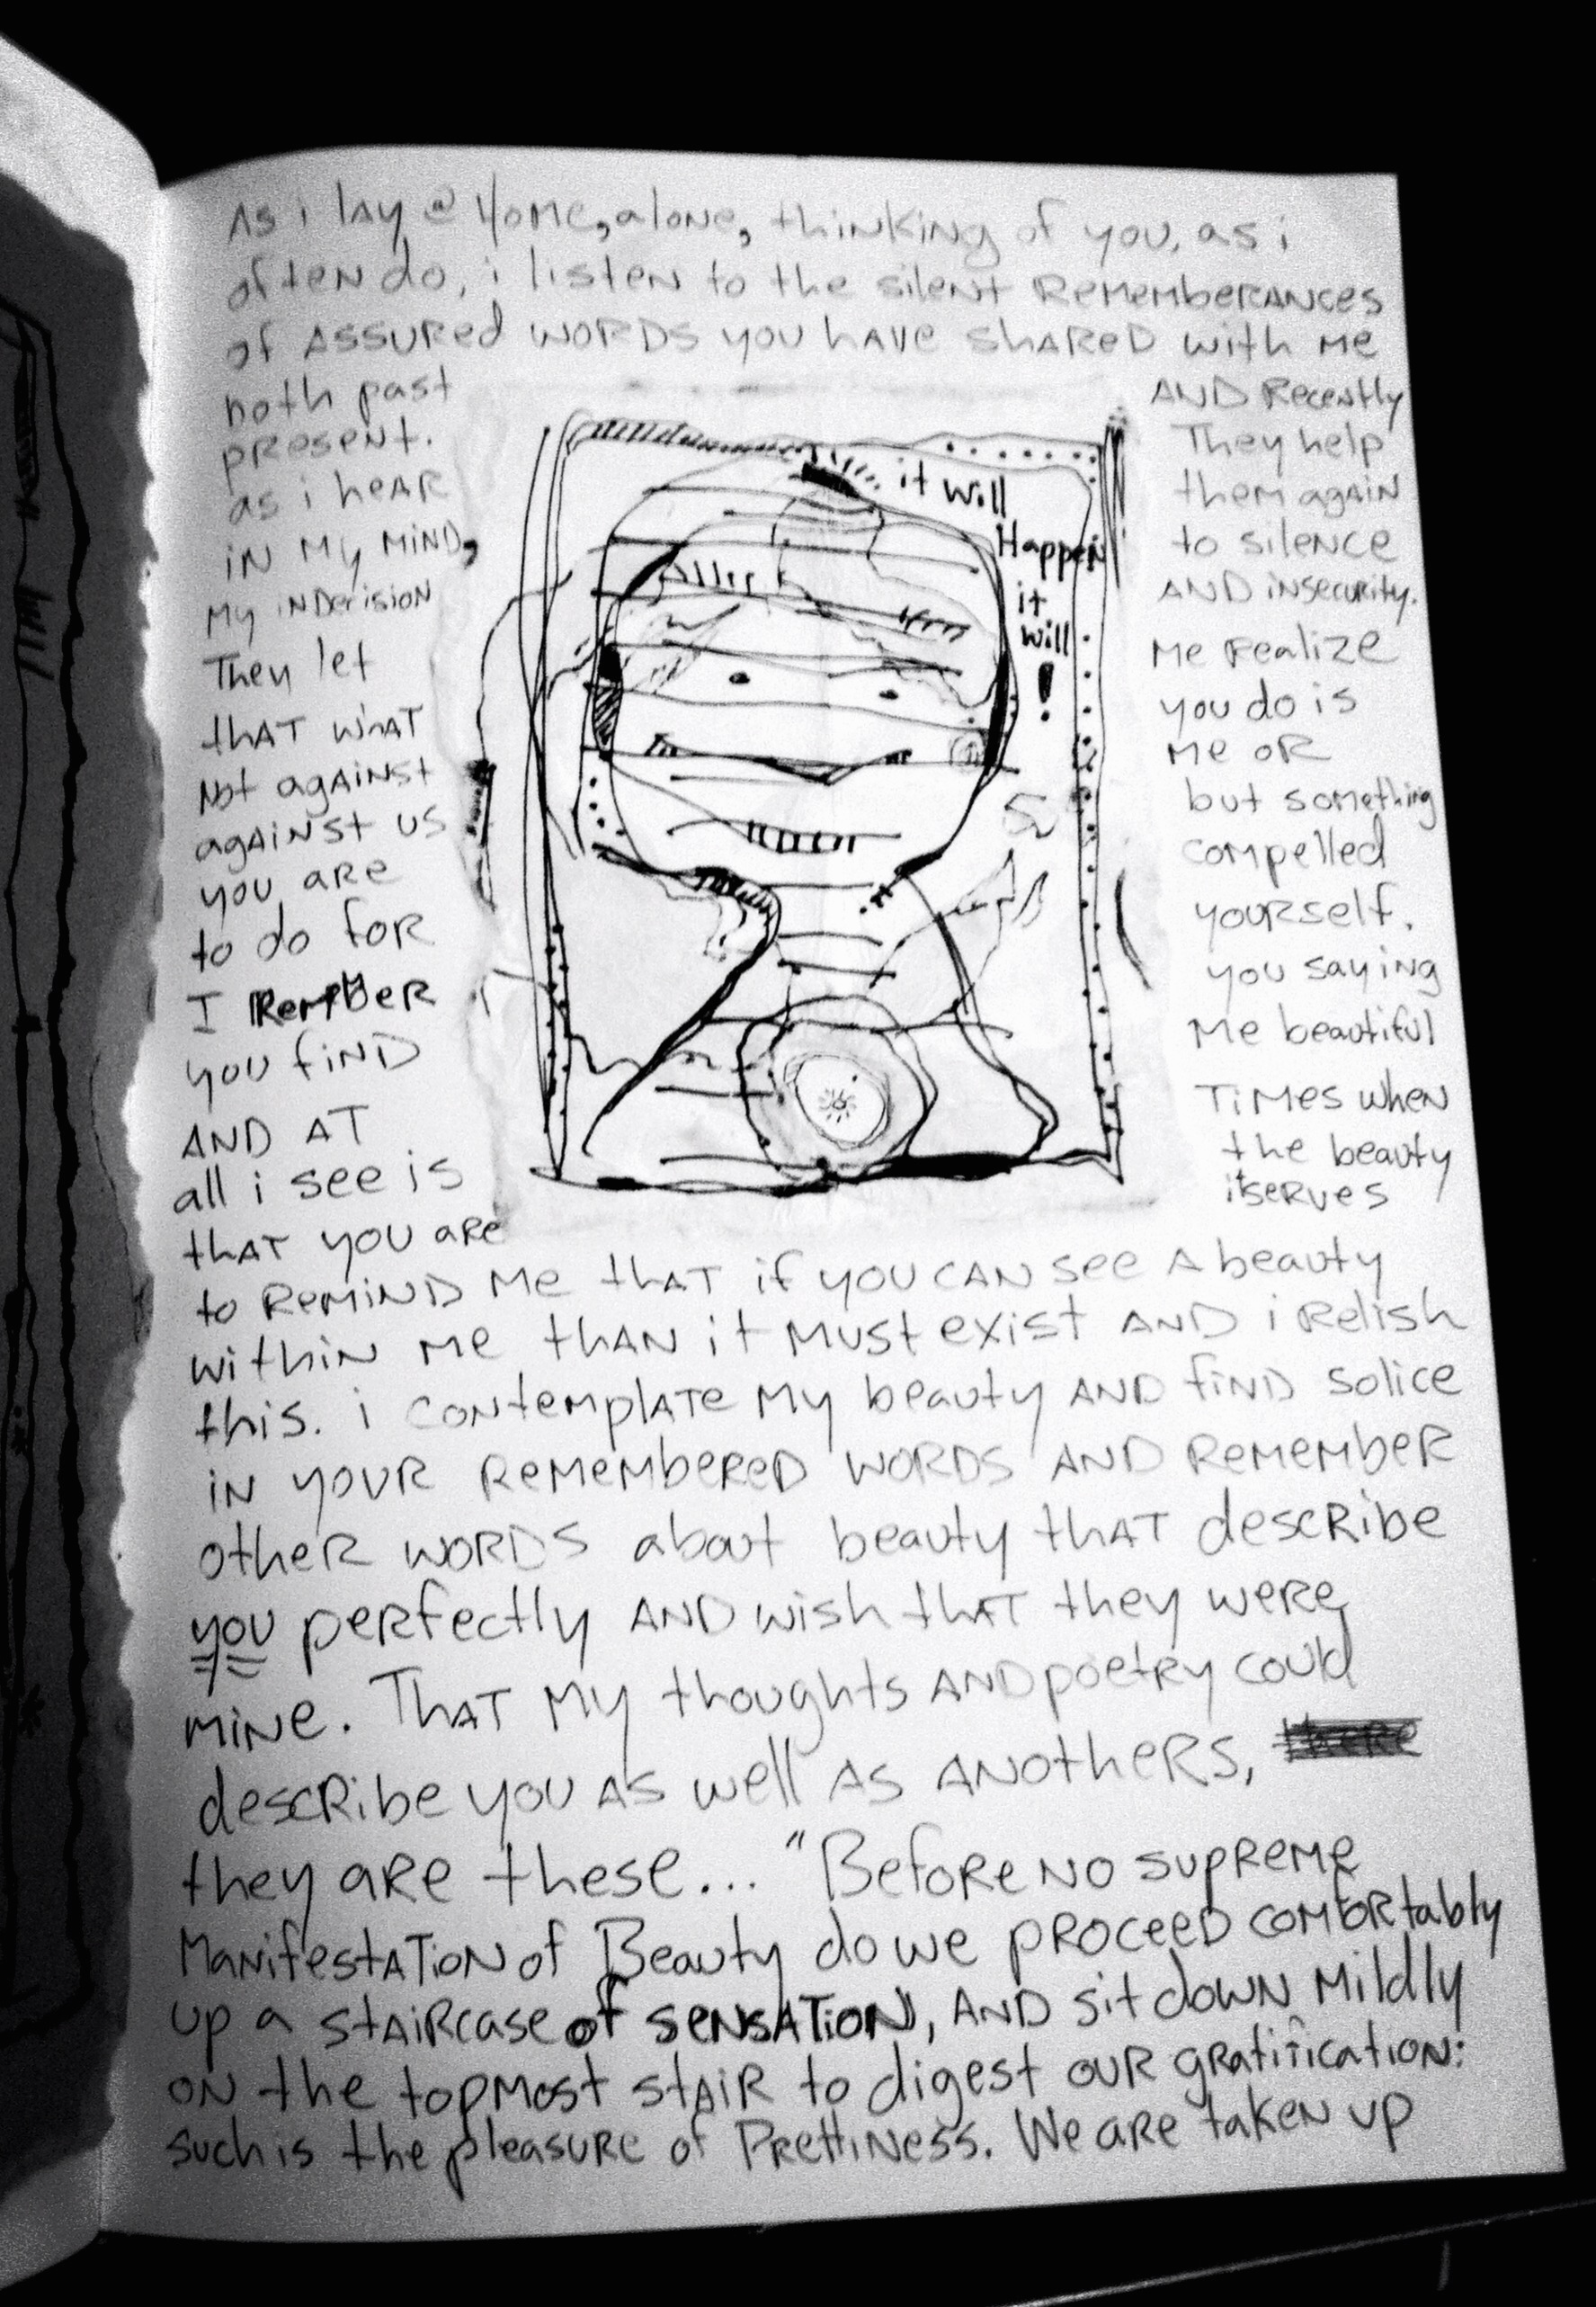 As i lay @ Home, alone, thinking of you, as i
often do, i listen to the silent Rememberances
of Assured words you have shared with me
both past AND Recently
present. They help
as i hear them again
in my mind, to silence
My inDecision AND insecurity.
They let Me realize
that what you do is
Not against Me or
against us but something
you are compelled
to do for yourself.
I Remember you saying
you find Me beautiful
AND AT Times when
all i see is the beauty
that you are it serves
to remind me that if you can see a beauty
within me than it must exist and i relish
this. i contemplate my beauty and find solice
in your remembered words and remember
other words about beauty that describe
you perfectly and wish that they were
mine. That my thoughts and poetry could
describe you as well as anothers, there
they are these... "Before no supreme
Manifestation of Beauty do we proceed comfortably
up a staircase of sensation, and sit down mildly
on the topmost stair to digest our gratification:
such is the pleasure of Prettiness. We are taken up
it will
Happen
it
will
!